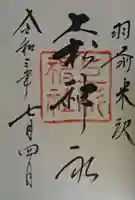 羽前米沢
上杉神社
令和三年七月四日